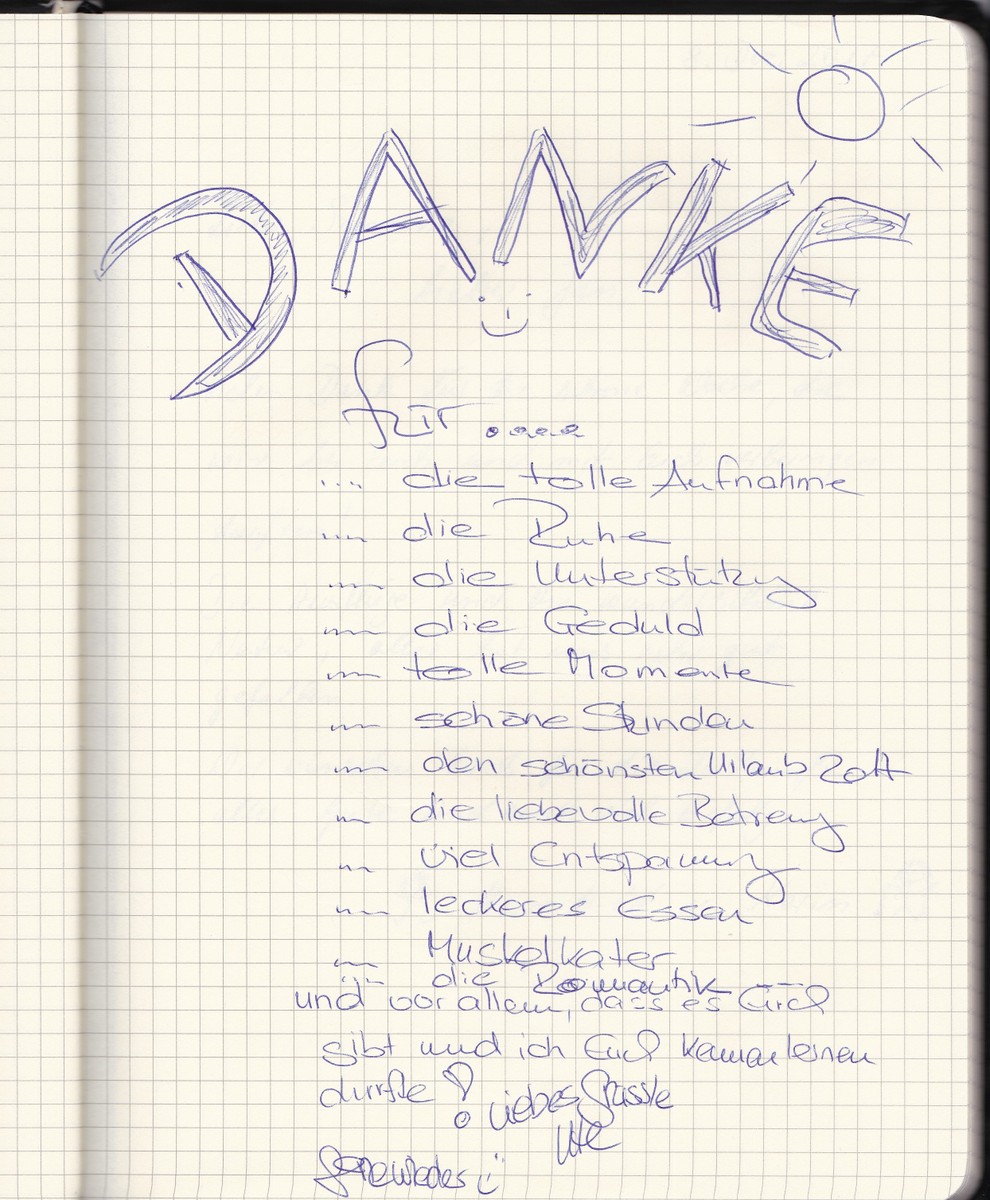 DANKE
für....
.... die tolle Aufnahme
.... die Ruhe
.... die Unterstützung
.... die Geduld
.... tolle Momente
.... schöne Stunden
.... den schönsten Urlaub
.... die liebevolle Betreuung
.... viel Entspannung
.... leckeres Essen
.... Muskelkater
.... die Romantik
und vor allem, dass es Euch
gibt und ich Euch kennenlernen
durfte!
Liebes
Ute